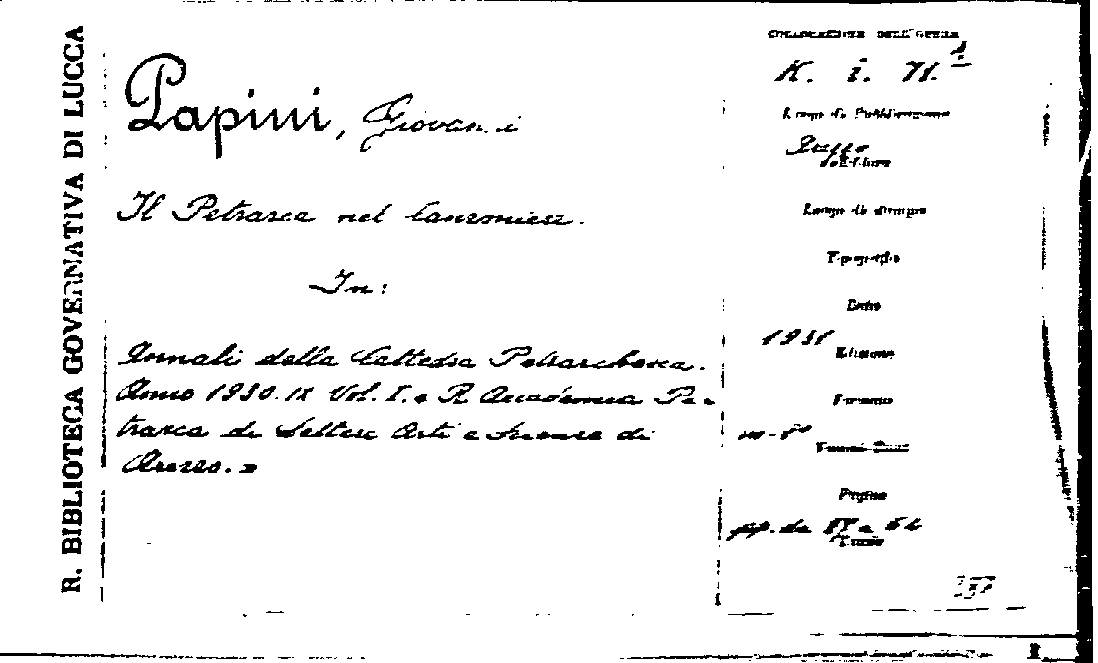 R. BIBLIOTECA GOVERNATIVA DI LUCCA
Papini, Giovanni
Il Petrarca nel Canzoniere.
In:
Annali della Cattedra Petrarchesca.
Anno 1930. IX Vol. I. R. Accademia Pe-
trarca di Lettere Arti e Scienze di
Arezzo.
COLLOCAZIONE DELL'OPERA
K. i. 71.
Luogo di Pubblicazione
Arezzo
Luogo di stampa
Tipografia
Data
1931
Edizione
Formato
in-8°
Pagine
pp. da